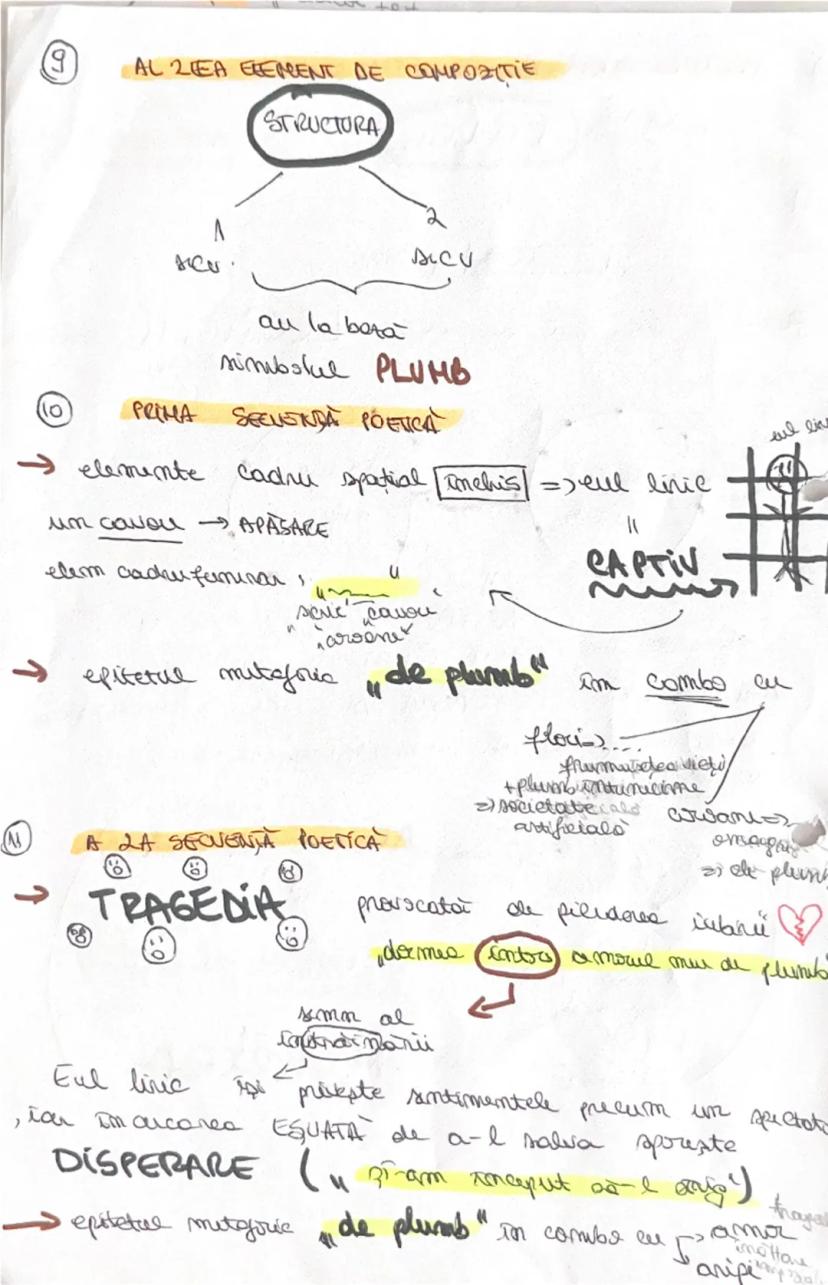 9
AL 2LEA ELEMENT DE COMPOZIȚIE
STRUCTURA
1 2
secv. secv
au la bază
simbolul PLUMB
10 PRIMA SECVENȚĂ POETICĂ
→ elemente cadru spațial închis => eul liric
eul lir
un cavou → APĂSARE "
CAPTIV
elem cadru funerar : " "
"sicrie" "cavou"
"coroane"
→ epitetul metaforic „de plumb" în combo cu
flori => ....
frumusețea vieții
+ plumb
=> societate
artificială
coroane =>
=> de plumb
11 A 2A SECVENȚĂ POETICĂ
→ TRAGEDIA provocată de pierderea iubirii
„dormea întors amorul meu de plumb"
semn al
înstrăinării
Eul liric își privește sentimentele precum un spectato
, iar încercarea EȘUATĂ de a-l salva sporește
DISPERARE („ și-am început să-l strig")
→ epitetul metaforic „de plumb" în combo cu → amor
aripi